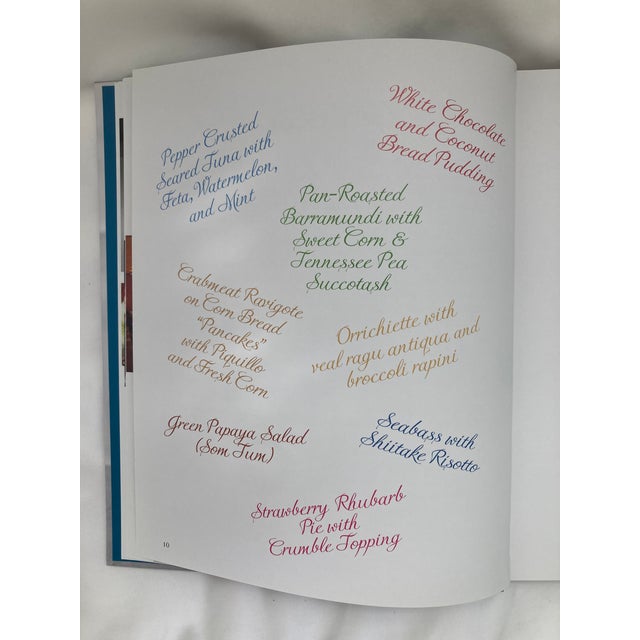 White Chocolate
and Coconut
Bread Pudding
Pepper Crusted
Seared Tuna with
Feta, Watermelon,
and Mint
Pan-Roasted
Barramundi with
Sweet Corn &
Tennessee Pea
Succotash
Crabmeat Ravigote
on Corn Bread
"Pancakes"
with Piquillo
and Fresh Corn
Orrichiette with
veal ragu antiqua and
broccoli rapini
Green Papaya Salad
(Som Tum)
Seabass with
Shiitake Risotto
Strawberry Rhubarb
Pie with
Crumble Topping
10